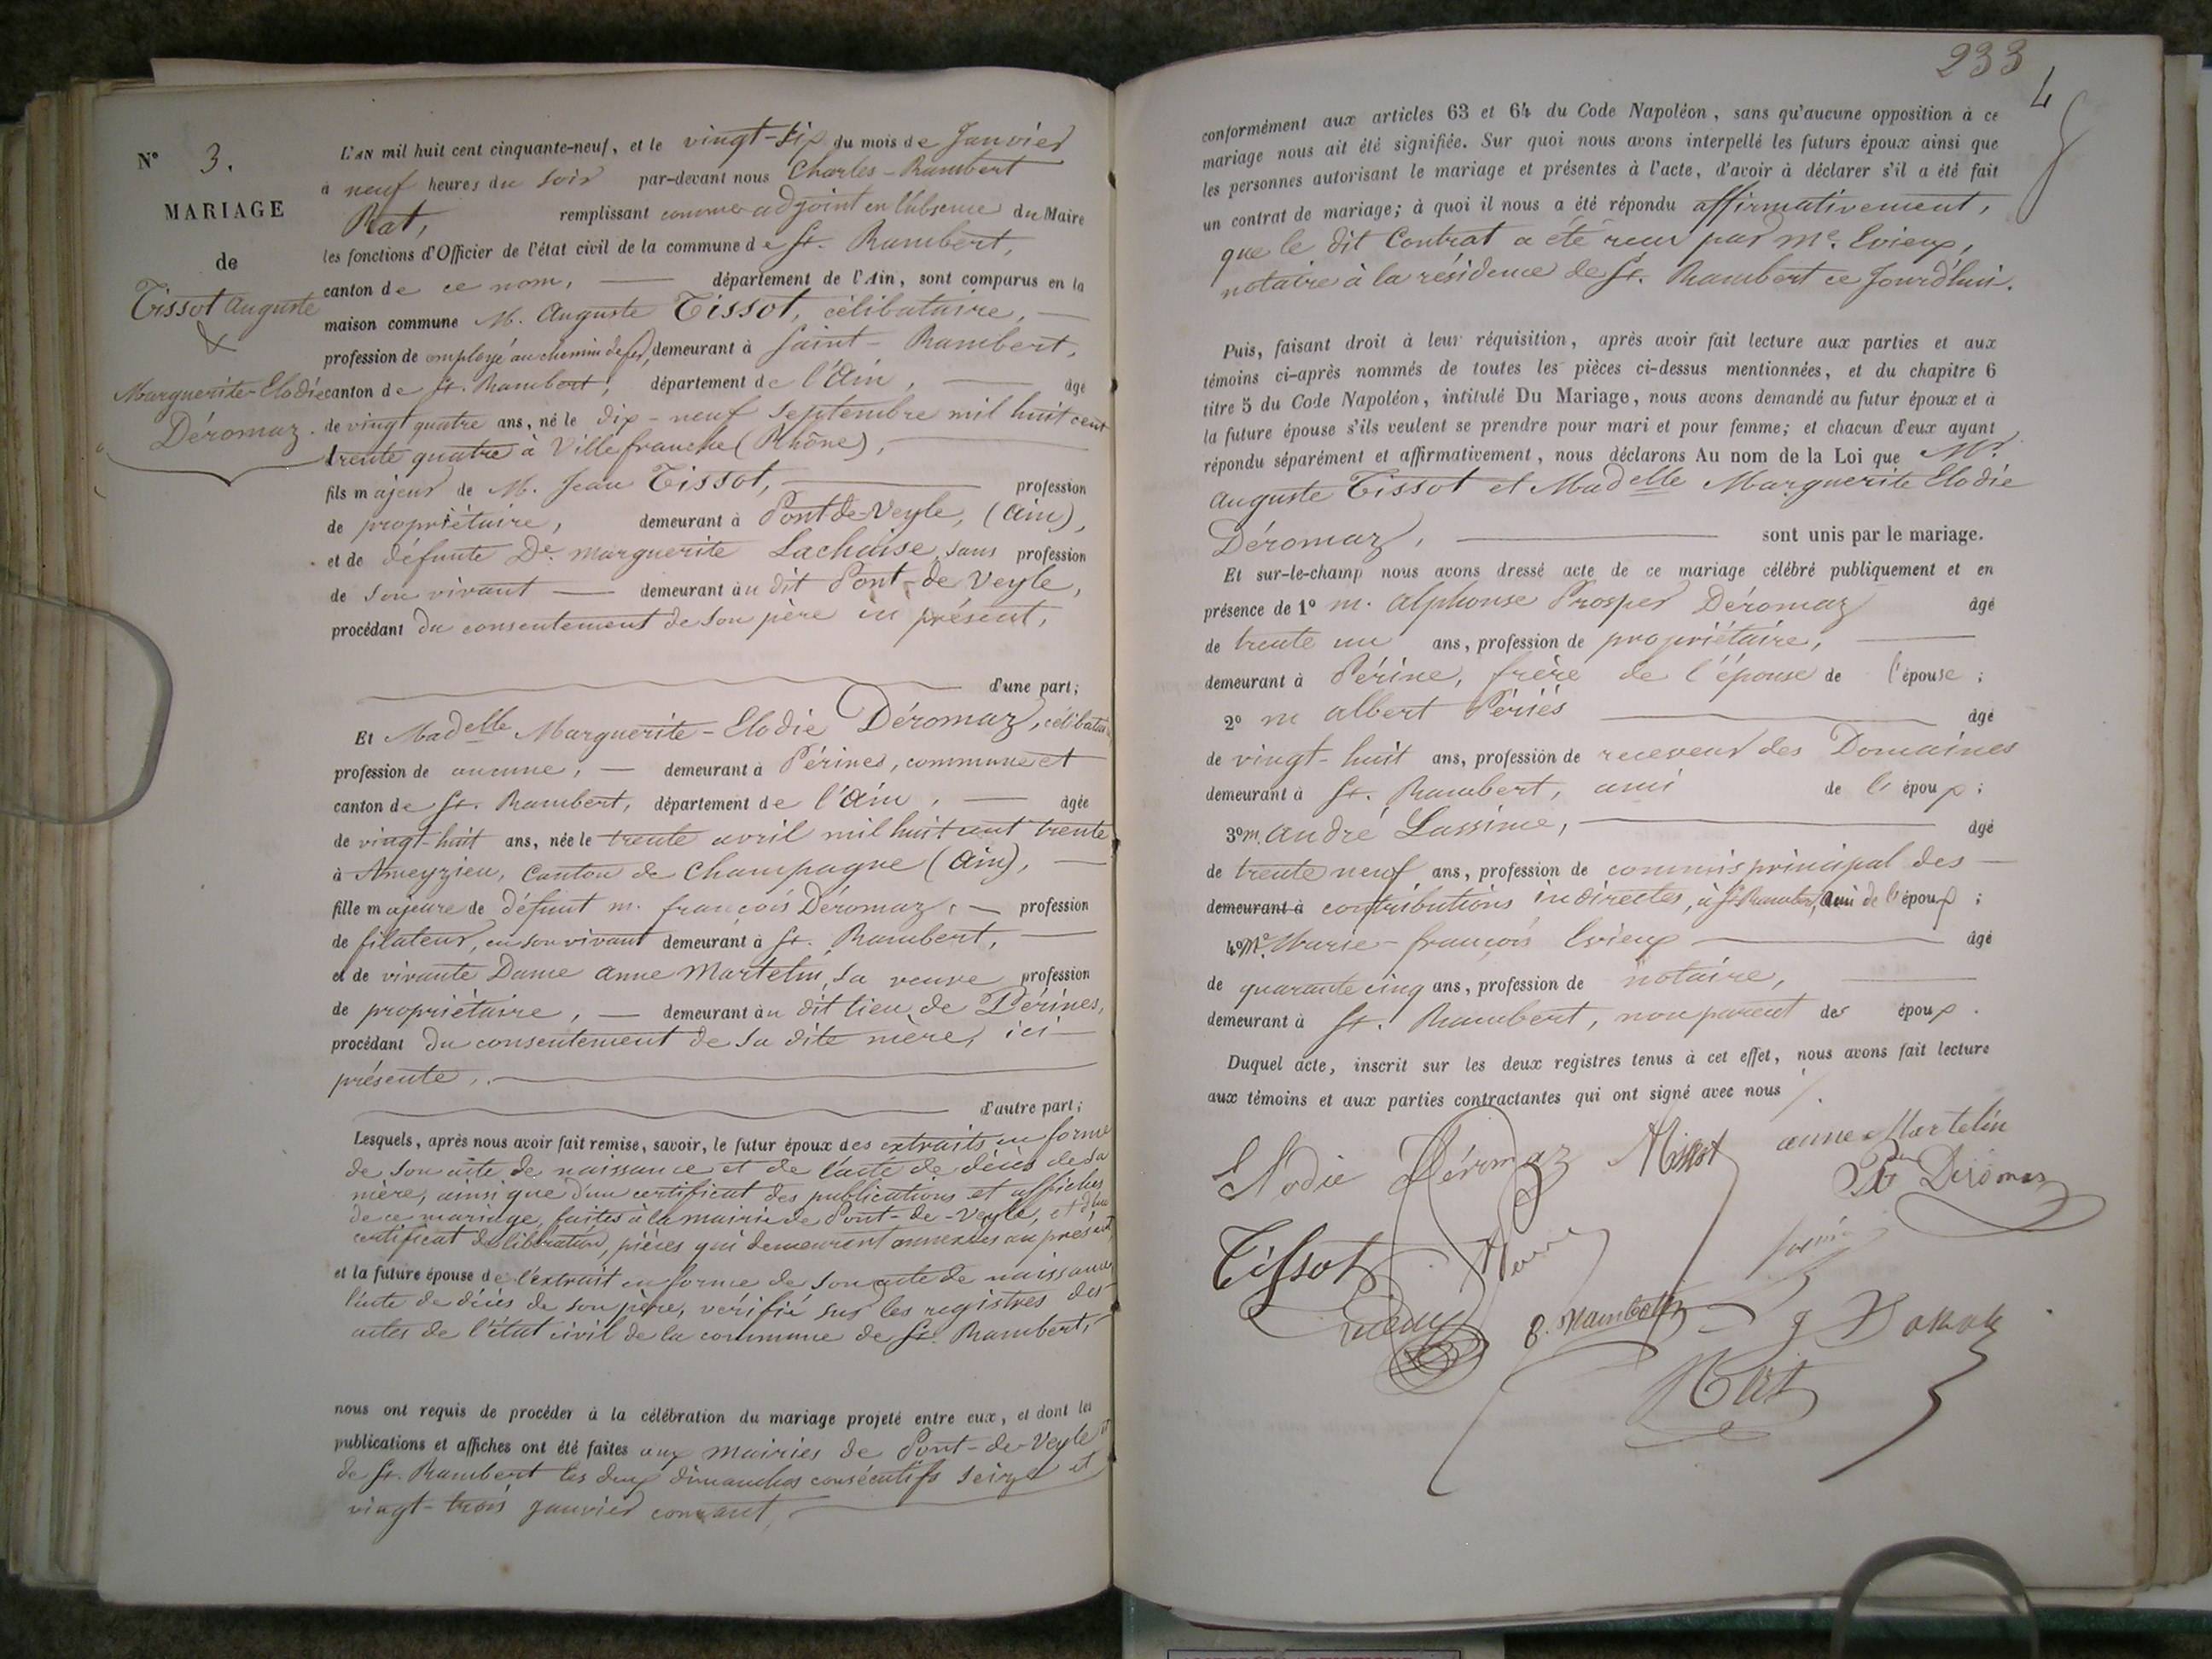 N° 3.
MARIAGE
de
Tissot Auguste
&
Marguerite-Elodie
Déromaz.
L'AN mil huit cent cinquante-neuf, et le vingt-six du mois de Janvier
à neuf heures du soir par-devant nous Charles-Rambert
Rat, remplissant comme adjoint en l'absence du Maire
les fonctions d'Officier de l'état civil de la commune de St. Rambert,
canton de ce nom, département de l'Ain, sont comparus en la
maison commune M. Auguste Tissot, célibataire,
profession de employé au chemin de fer, demeurant à Saint-Rambert,
canton de St. Rambert, département de l'Ain, âgé
de vingt quatre ans, né le dix-neuf Septembre mil huit cent
trente quatre à Villefranche (Rhône),
fils majeur de M. Jean Tissot, profession
de propriétaire, demeurant à Pont-de-Veyle, (Ain),
et de défunte De. Marguerite Lachaise, sans profession
de son vivant demeurant au dit Pont-de-Veyle,
procédant du consentement de son père ici présent,
d'une part;
Et Madelle Marguerite-Elodie Déromaz, célibataire
profession de aucune, demeurant à Pérines, commune et
canton de St. Rambert, département de l'Ain, âgée
de vingt-huit ans, née le trente avril mil huit cent trente
à Ameyzieu, Canton de Champagne (Ain),
fille majeure de défunt m. françois Déromaz, profession
de filateur, en son vivant demeurant à St. Rambert,
et de vivante Dame Anne Martelin, sa veuve profession
de propriétaire, demeurant au dit lieu de Pérines,
procédant du consentement de sa dite mère, ici
présente,
d'autre part;
Lesquels, après nous avoir fait remise, savoir, le futur époux des extraits en forme
de son acte de naissance et de l'acte de décès de sa
mère, ainsi que d'un certificat des publications et affiches
de ce mariage, faites à la mairie de Pont-de-Veyle, et d'un
certificat de libération, pièces qui demeurent annexées au présent,
et la future épouse de l'extrait en forme de son acte de naissance
l'acte de décès de son père, vérifié sur les registres des
actes de l'état civil de la commune de St. Rambert,
nous ont requis de procéder à la célébration du mariage projeté entre eux, et dont les
publications et affiches ont été faites aux mairies de Pont-de-Veyle et
de St. Rambert les deux dimanches consécutifs seize et
vingt-trois janvier courant,
233
4
conformément aux articles 63 et 64 du Code Napoléon, sans qu'aucune opposition à ce
mariage nous ait été signifiée. Sur quoi nous avons interpellé les futurs époux ainsi que
les personnes autorisant le mariage et présentes à l'acte, d'avoir à déclarer s'il a été fait
un contrat de mariage; à quoi il nous a été répondu affirmativement,
que le dit Contrat a été reçu par Me. Evieux,
notaire à la résidence de St. Rambert ce jourd'hui.
Puis, faisant droit à leur réquisition, après avoir fait lecture aux parties et aux
témoins ci-après nommés de toutes les pièces ci-dessus mentionnées, et du chapitre 6
titre 5 du Code Napoléon, intitulé Du Mariage, nous avons demandé au futur époux et à
la future épouse s'ils veulent se prendre pour mari et pour femme; et chacun d'eux ayant
répondu séparément et affirmativement, nous déclarons Au nom de la Loi que Mr.
Auguste Tissot et Madelle Marguerite Elodie
Déromaz, sont unis par le mariage.
Et sur-le-champ nous avons dressé acte de ce mariage célébré publiquement et en
présence de 1° m. Alphonse Prosper Déromaz âgé
de trente un ans, profession de propriétaire,
demeurant à Périne, frère de l'épouse de l'épouse;
2° m albert Périés âgé
de vingt-huit ans, profession de receveur des Domaines
demeurant à St. Rambert, ami de l'époux;
3° m. André Lassime, âgé
de trente neuf ans, profession de commis principal des
demeurant à contributions indirectes, à St. Rambert, ami de l'époux;
4° Me. Marie-françois Evieux âgé
de quarante cinq ans, profession de notaire,
demeurant à St. Rambert, non parent des époux.
Duquel acte, inscrit sur les deux registres tenus à cet effet, nous avons fait lecture
aux témoins et aux parties contractantes qui ont signé avec nous.
Elodie Déromaz Anne Martelin
Déromaz
Tissot
Evieux
Rat